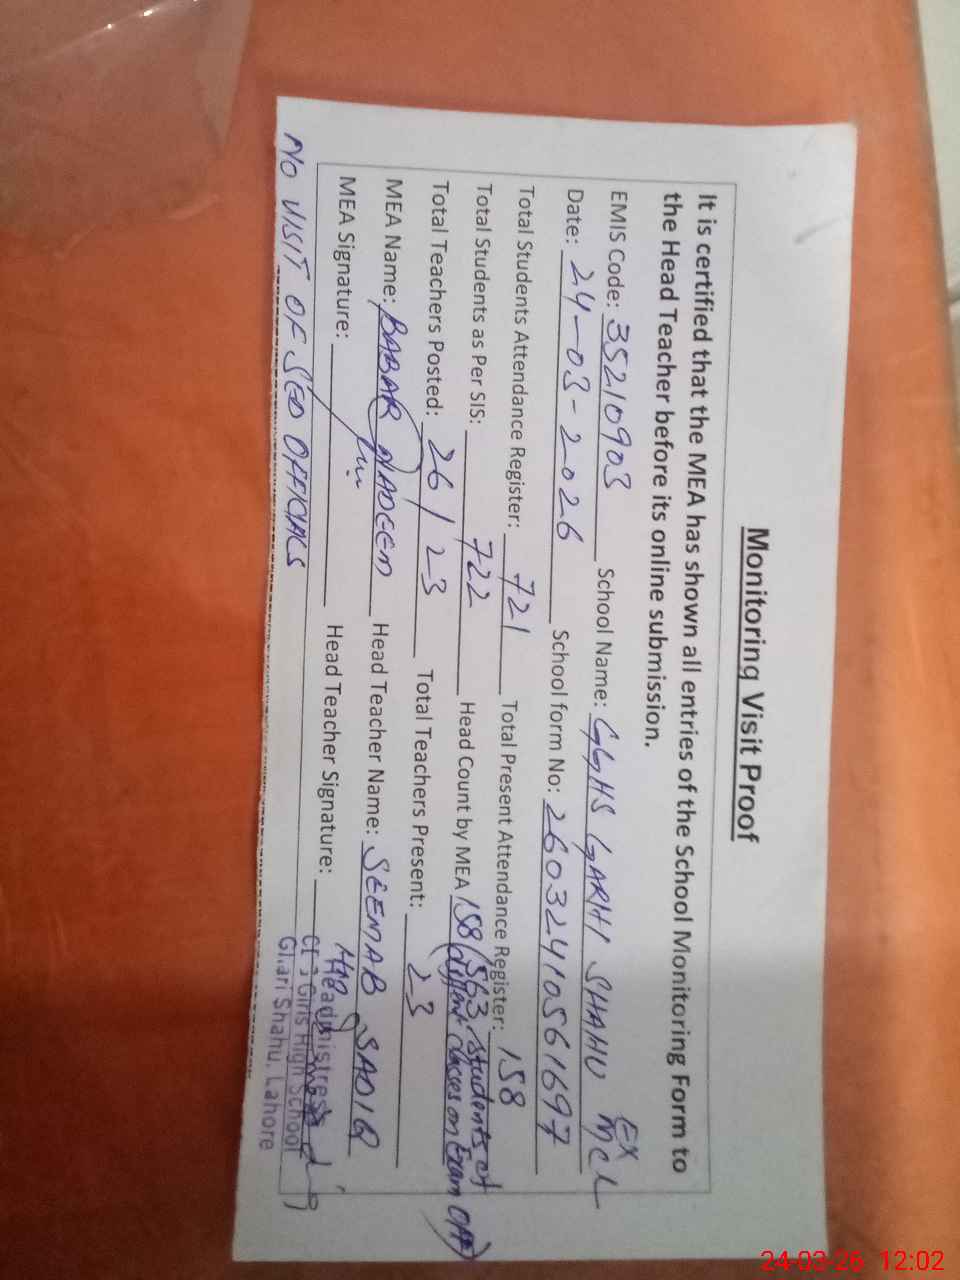 Monitoring Visit Proof
It is certified that the MEA has shown all entries of the School Monitoring Form to
the Head Teacher before its online submission.
EMIS Code: 35210903 School Name: GGHS GARHI SHAHU EX MCL
Date: 24-03-2026 School form No: 26032410561697
Total Students Attendance Register: 721 Total Present Attendance Register: 158
Total Students as Per SIS: 722 Head Count by MEA 158 (563 students of
different classes on Exam off)
Total Teachers Posted: 26/23 Total Teachers Present: 23
MEA Name: BABAR NADEEM Head Teacher Name: SEEMAB SADIQ
MEA Signature: Head Teacher Signature:
Headmistress
Girls High School
Ghari Shahu, Lahore
NO VISIT OF SED OFFICIALS
24-03-26 12:02